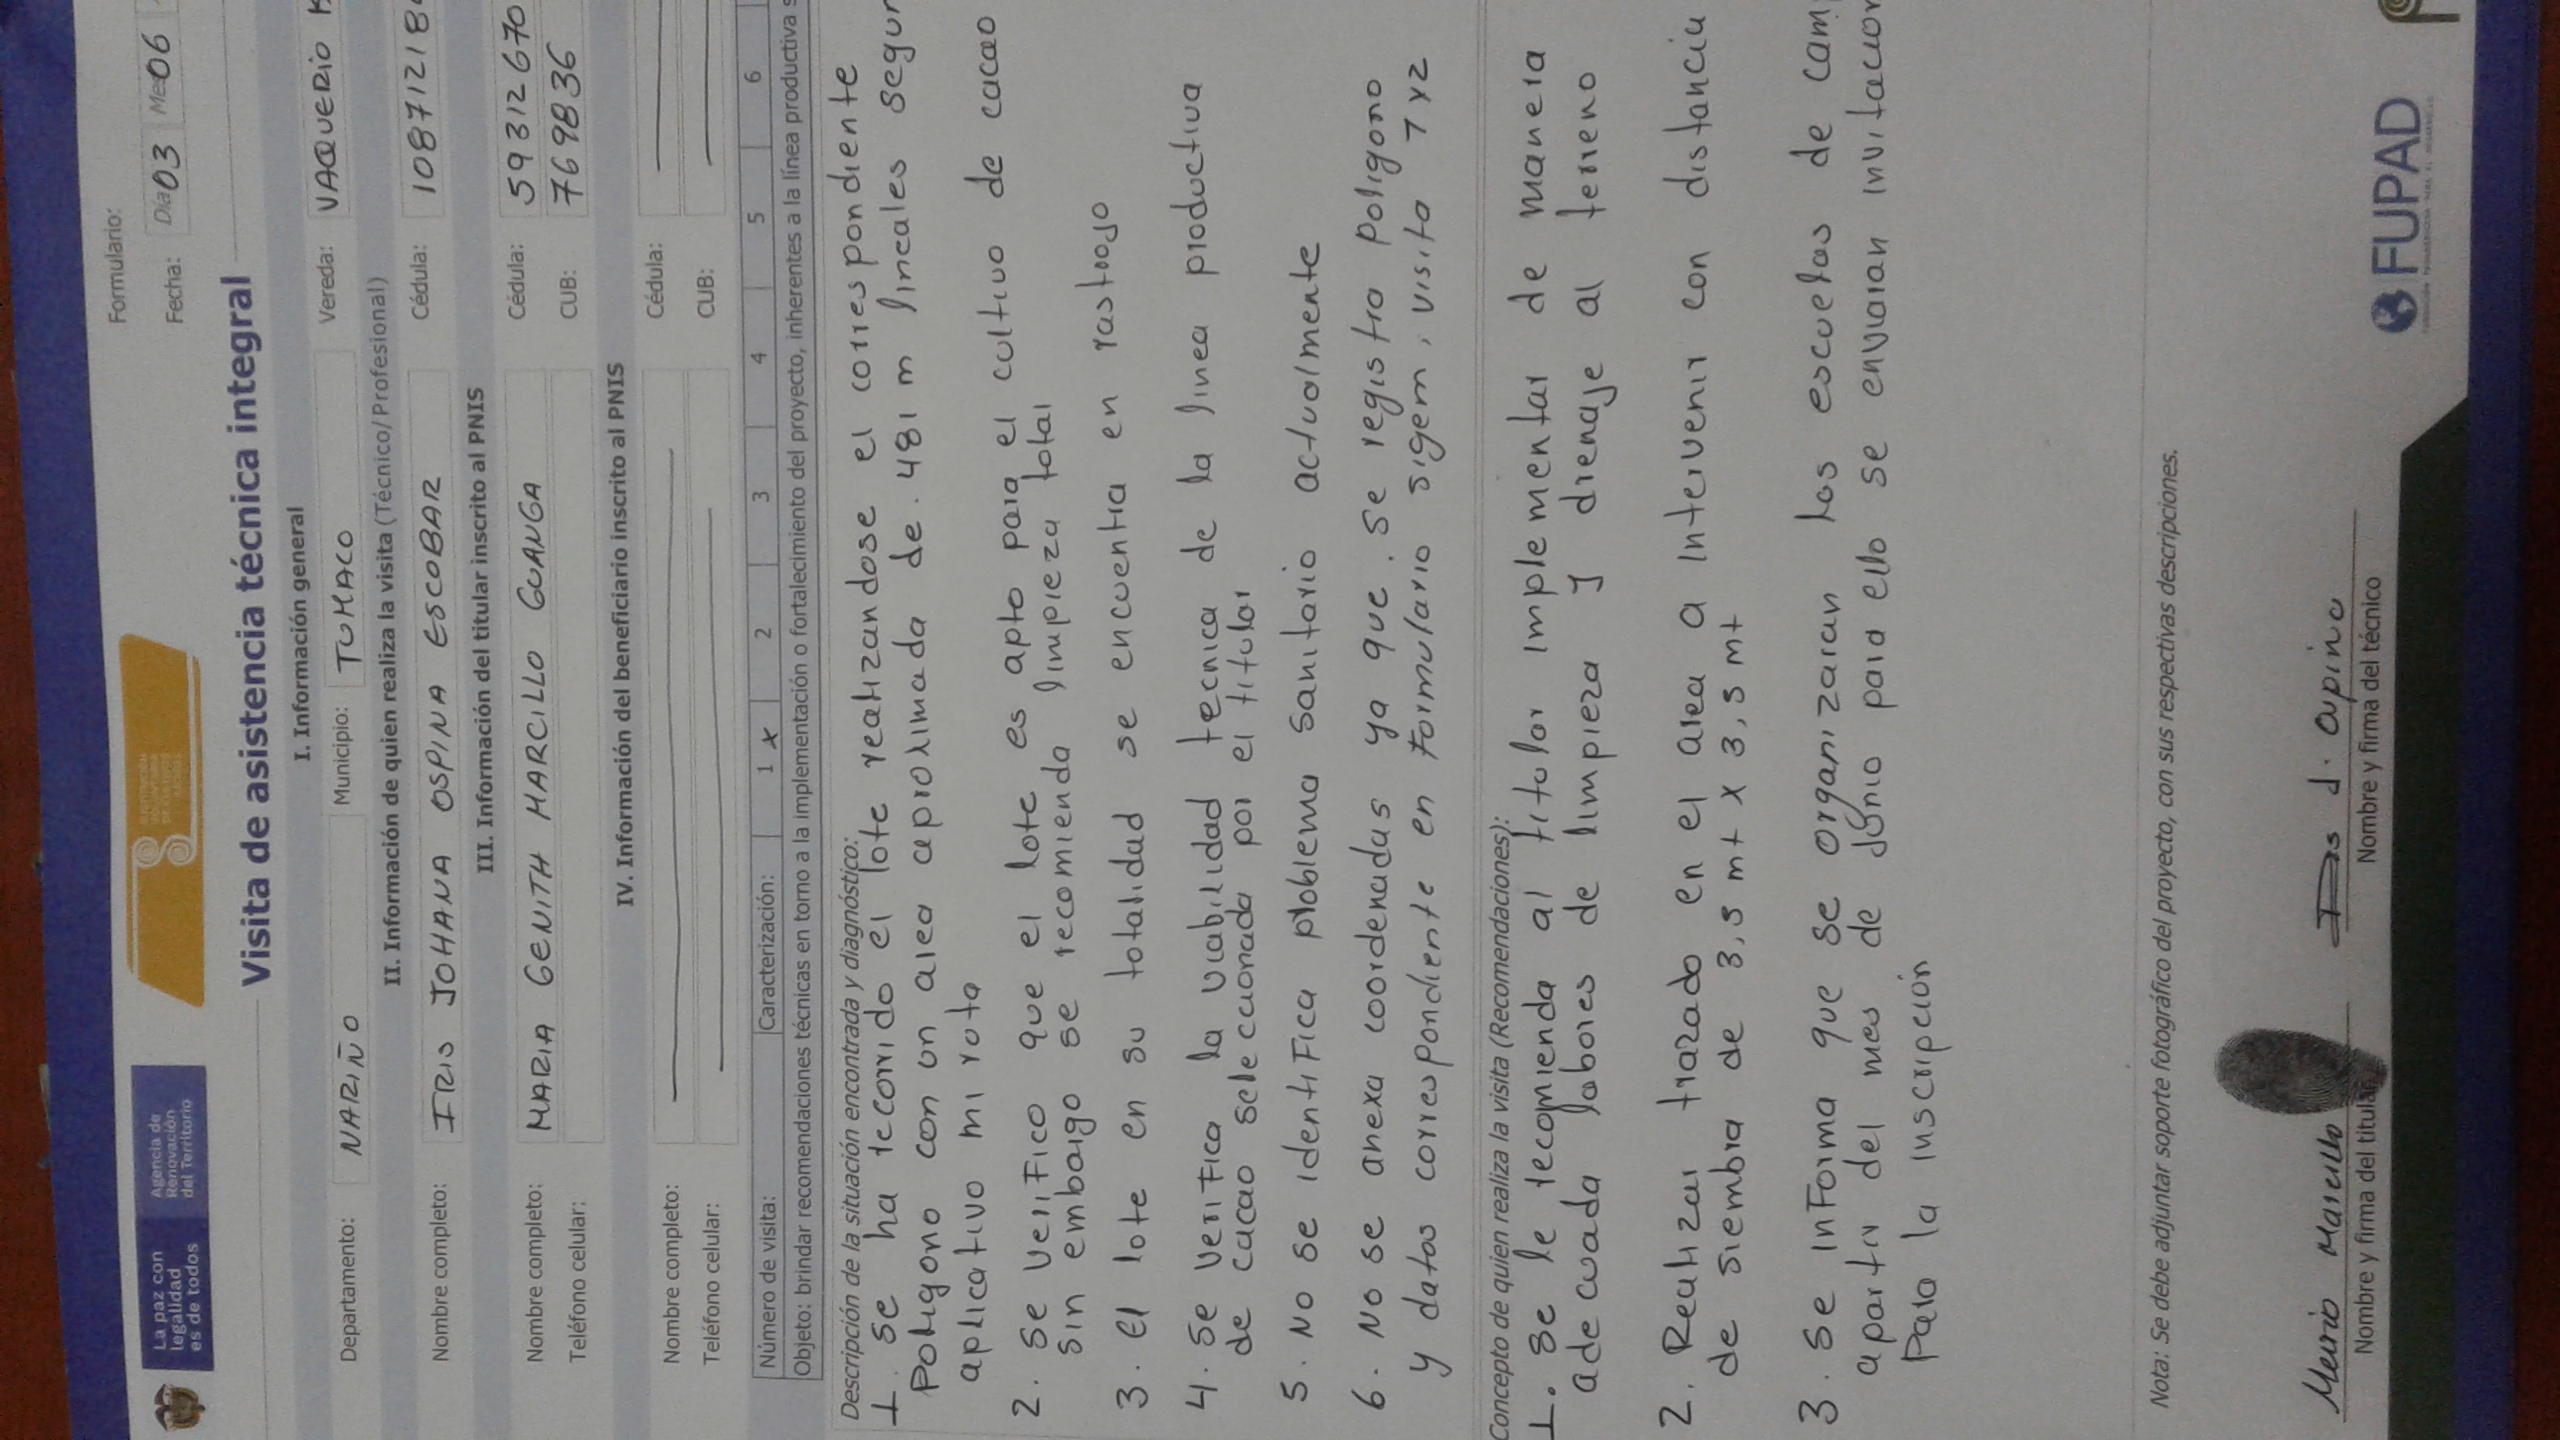 La paz con
legalidad
es de todos
Agencia de
Renovación
del Territorio
Formulario:
Fecha: Día 03 Mes 06
Visita de asistencia técnica integral
I. Información general
Departamento: NARIÑO Municipio: TUMACO Vereda: VAQUERIO
II. Información de quien realiza la visita (Técnico/ Profesional)
Nombre completo: IRIS JOHANA OSPINA ESCOBAR Cédula: 108712184
III. Información del titular inscrito al PNIS
Nombre completo: MARIA GENITH MARCILLO GUANGA Cédula: 59312670
Teléfono celular: CUB: 7698836
IV. Información del beneficiario inscrito al PNIS
Nombre completo: Cédula:
Teléfono celular: CUB:
Número de visita: Caracterización: 1 x 2 3 4 5 6
Objeto: brindar recomendaciones técnicas en torno a la implementación o fortalecimiento del proyecto, inherentes a la línea productiva
Descripción de la situación encontrada y diagnóstico:
1. se ha recorrido el lote realizandose el correspondiente
Poligono con un area aproximada de. 481 m lineales segun
aplicativo mi ruta
2. se verifico que el lote es apto para el cultivo de cacao
sin embargo se recomienda limpieza total
3. el lote en su totalidad se encuentra en rastrojo
4. se verifica la viabilidad tecnica de la linea productiva
de cacao seleccionada por el titular
5. No se identifica problema sanitario actualmente
6. No se anexa coordenadas ya que. se registra poligono
y datos correspondiente en formulario sigem, visita 7x2
Concepto de quien realiza la visita (Recomendaciones):
1. se le recomienda al titular implementar de manera
adecuada labores de limpieza y drenaje al terreno
2. Realizar trazado en el area a intervenir con distancia
de siembra de 3,5 mt x 3,5 mt
3. se informa que se organizaran las escuelas de cam
apartir del mes de junio para ello se enviaran invitacion
Para la inscripción
Nota: Se debe adjuntar soporte fotográfico del proyecto, con sus respectivas descripciones.
Maria Marcillo
Nombre y firma del titular
Nombre y firma del técnico
FUPAD